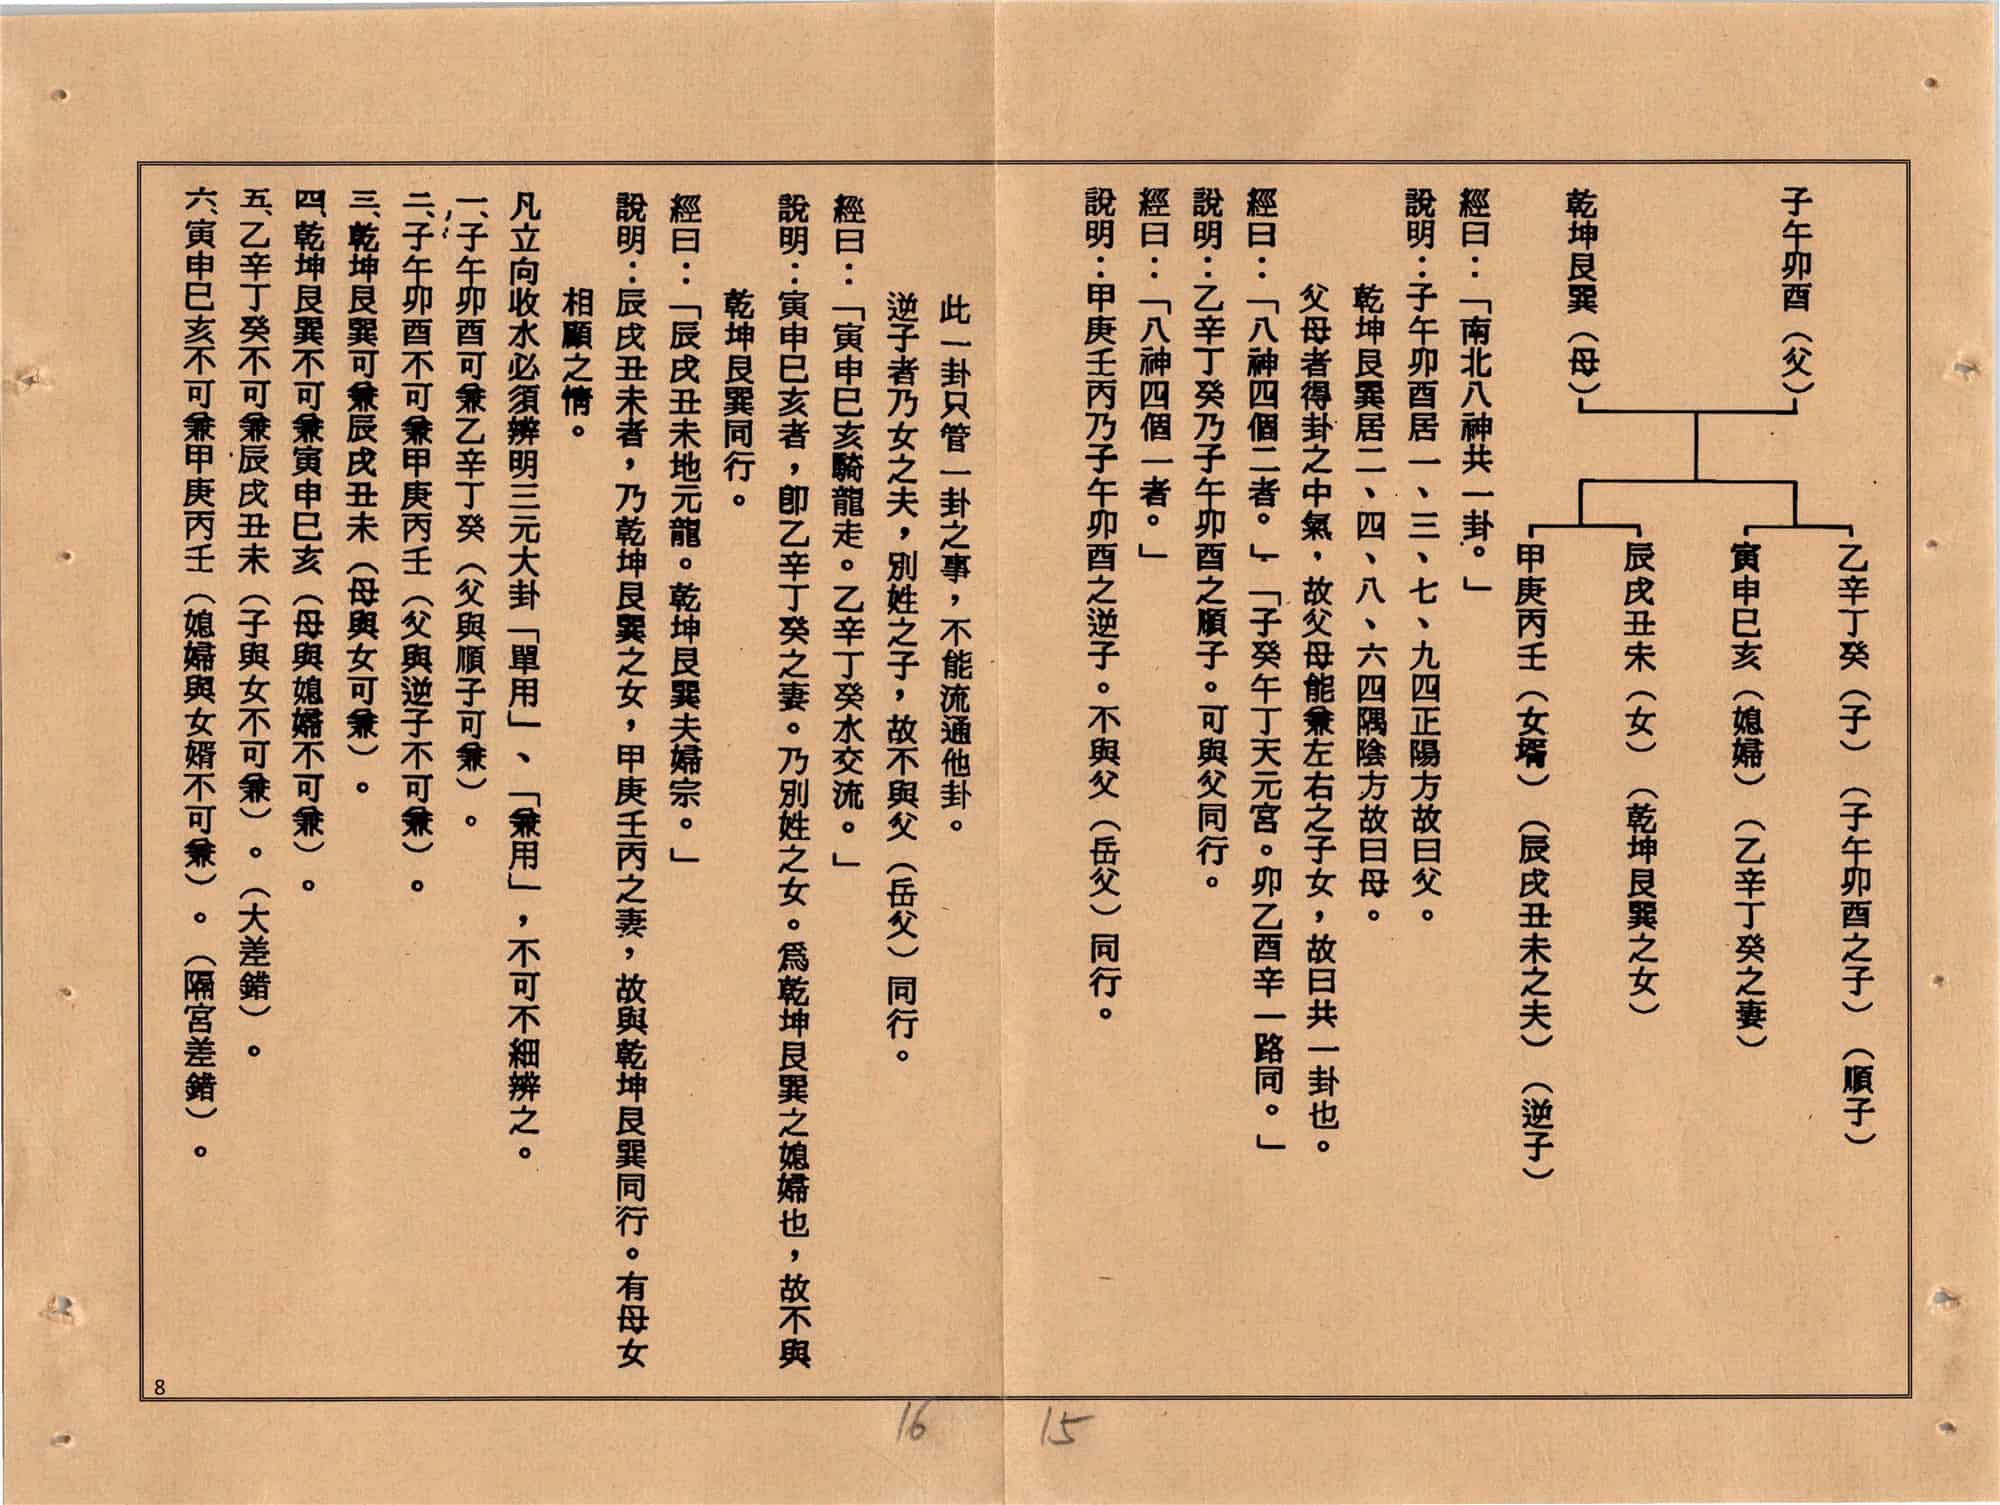 子午卯酉（父）
乾坤艮巽（母）
乙辛丁癸（子）（子午卯酉之子）（順子）
寅申巳亥（媳婦）（乙辛丁癸之妻）
辰戌丑未（女）（乾坤艮巽之女）
甲庚丙壬（女壻）（辰戌丑未之夫）（逆子）
經曰：「南北八神共一卦。」
說明：子午卯酉居一、三、七、九四正陽方故曰父。
乾坤艮巽居二、四、八、六四隅陰方故曰母。
父母者得卦之中氣，故父母能兼左右之子女，故曰共一卦也。
經曰：「八神四個二者。」．「子癸午丁天元宮。卯乙酉辛一路同。」
說明：乙辛丁癸乃子午卯酉之順子。可與父同行。
經曰：「八神四個一者。」
說明：甲庚壬丙乃子午卯酉之逆子。不與父（岳父）同行。
此一卦只管一卦之事，不能流通他卦。
逆子者乃女之夫，別姓之子，故不與父（岳父）同行。
經曰：「寅申巳亥騎龍走。乙辛丁癸水交流。」
說明：寅申巳亥者，卽乙辛丁癸之妻。乃別姓之女。爲乾坤艮巽之媳婦也，故不與
乾坤艮巽同行。
經曰：「辰戌丑未地元龍。乾坤艮巽夫婦宗。」
說明：辰戌丑未者，乃乾坤艮巽之女，甲庚壬丙之妻，故與乾坤艮巽同行。有母女
相顧之情。
凡立向收水必須辨明三元大卦「單用」、「兼用」，不可不細辨之。
一、子午卯酉可兼乙辛丁癸（父與順子可兼）。
二、子午卯酉不可兼甲庚丙壬（父與逆子不可兼）。
三、乾坤艮巽可兼辰戌丑未（母與女可兼）。
四、乾坤艮巽不可兼寅申巳亥（母與媳婦不可兼）。
五、乙辛丁癸不可兼辰戌丑未（子與女不可兼）。（大差錯）。
六、寅申巳亥不可兼甲庚丙壬（媳婦與女婿不可兼）。（隔宮差錯）。
8
15
16